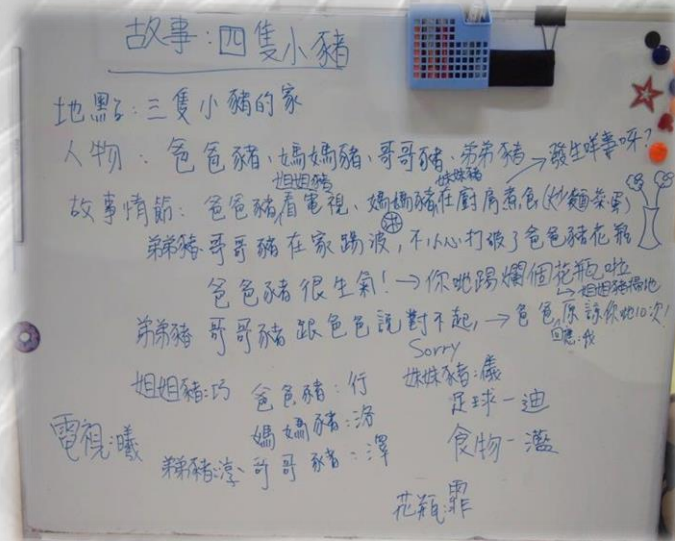 故事:四隻小豬
地點:三隻小豬的家
人物:爸爸豬、媽媽豬、哥哥豬、弟弟豬→發生咩事呀?
姐姐豬 妹妹豬
故事情節:爸爸豬看電視、媽媽豬在廚房煮食(炒麵、菜、蛋)
弟弟豬 哥哥豬在家踢波,不小心打破了爸爸豬花瓶
爸爸豬很生氣!→你哋踢爛個花瓶啦
→姐姐豬掃地
弟弟豬 哥哥豬跟爸爸說對不起,→爸爸原諒你哋10次!
Sorry 回應:我
姐姐豬:巧 爸爸豬:行 妹妹豬:儀
足球-迪
電視:曦 媽媽豬:洛 食物-灆
弟弟豬:淳 哥哥豬:澤
花瓶:霏